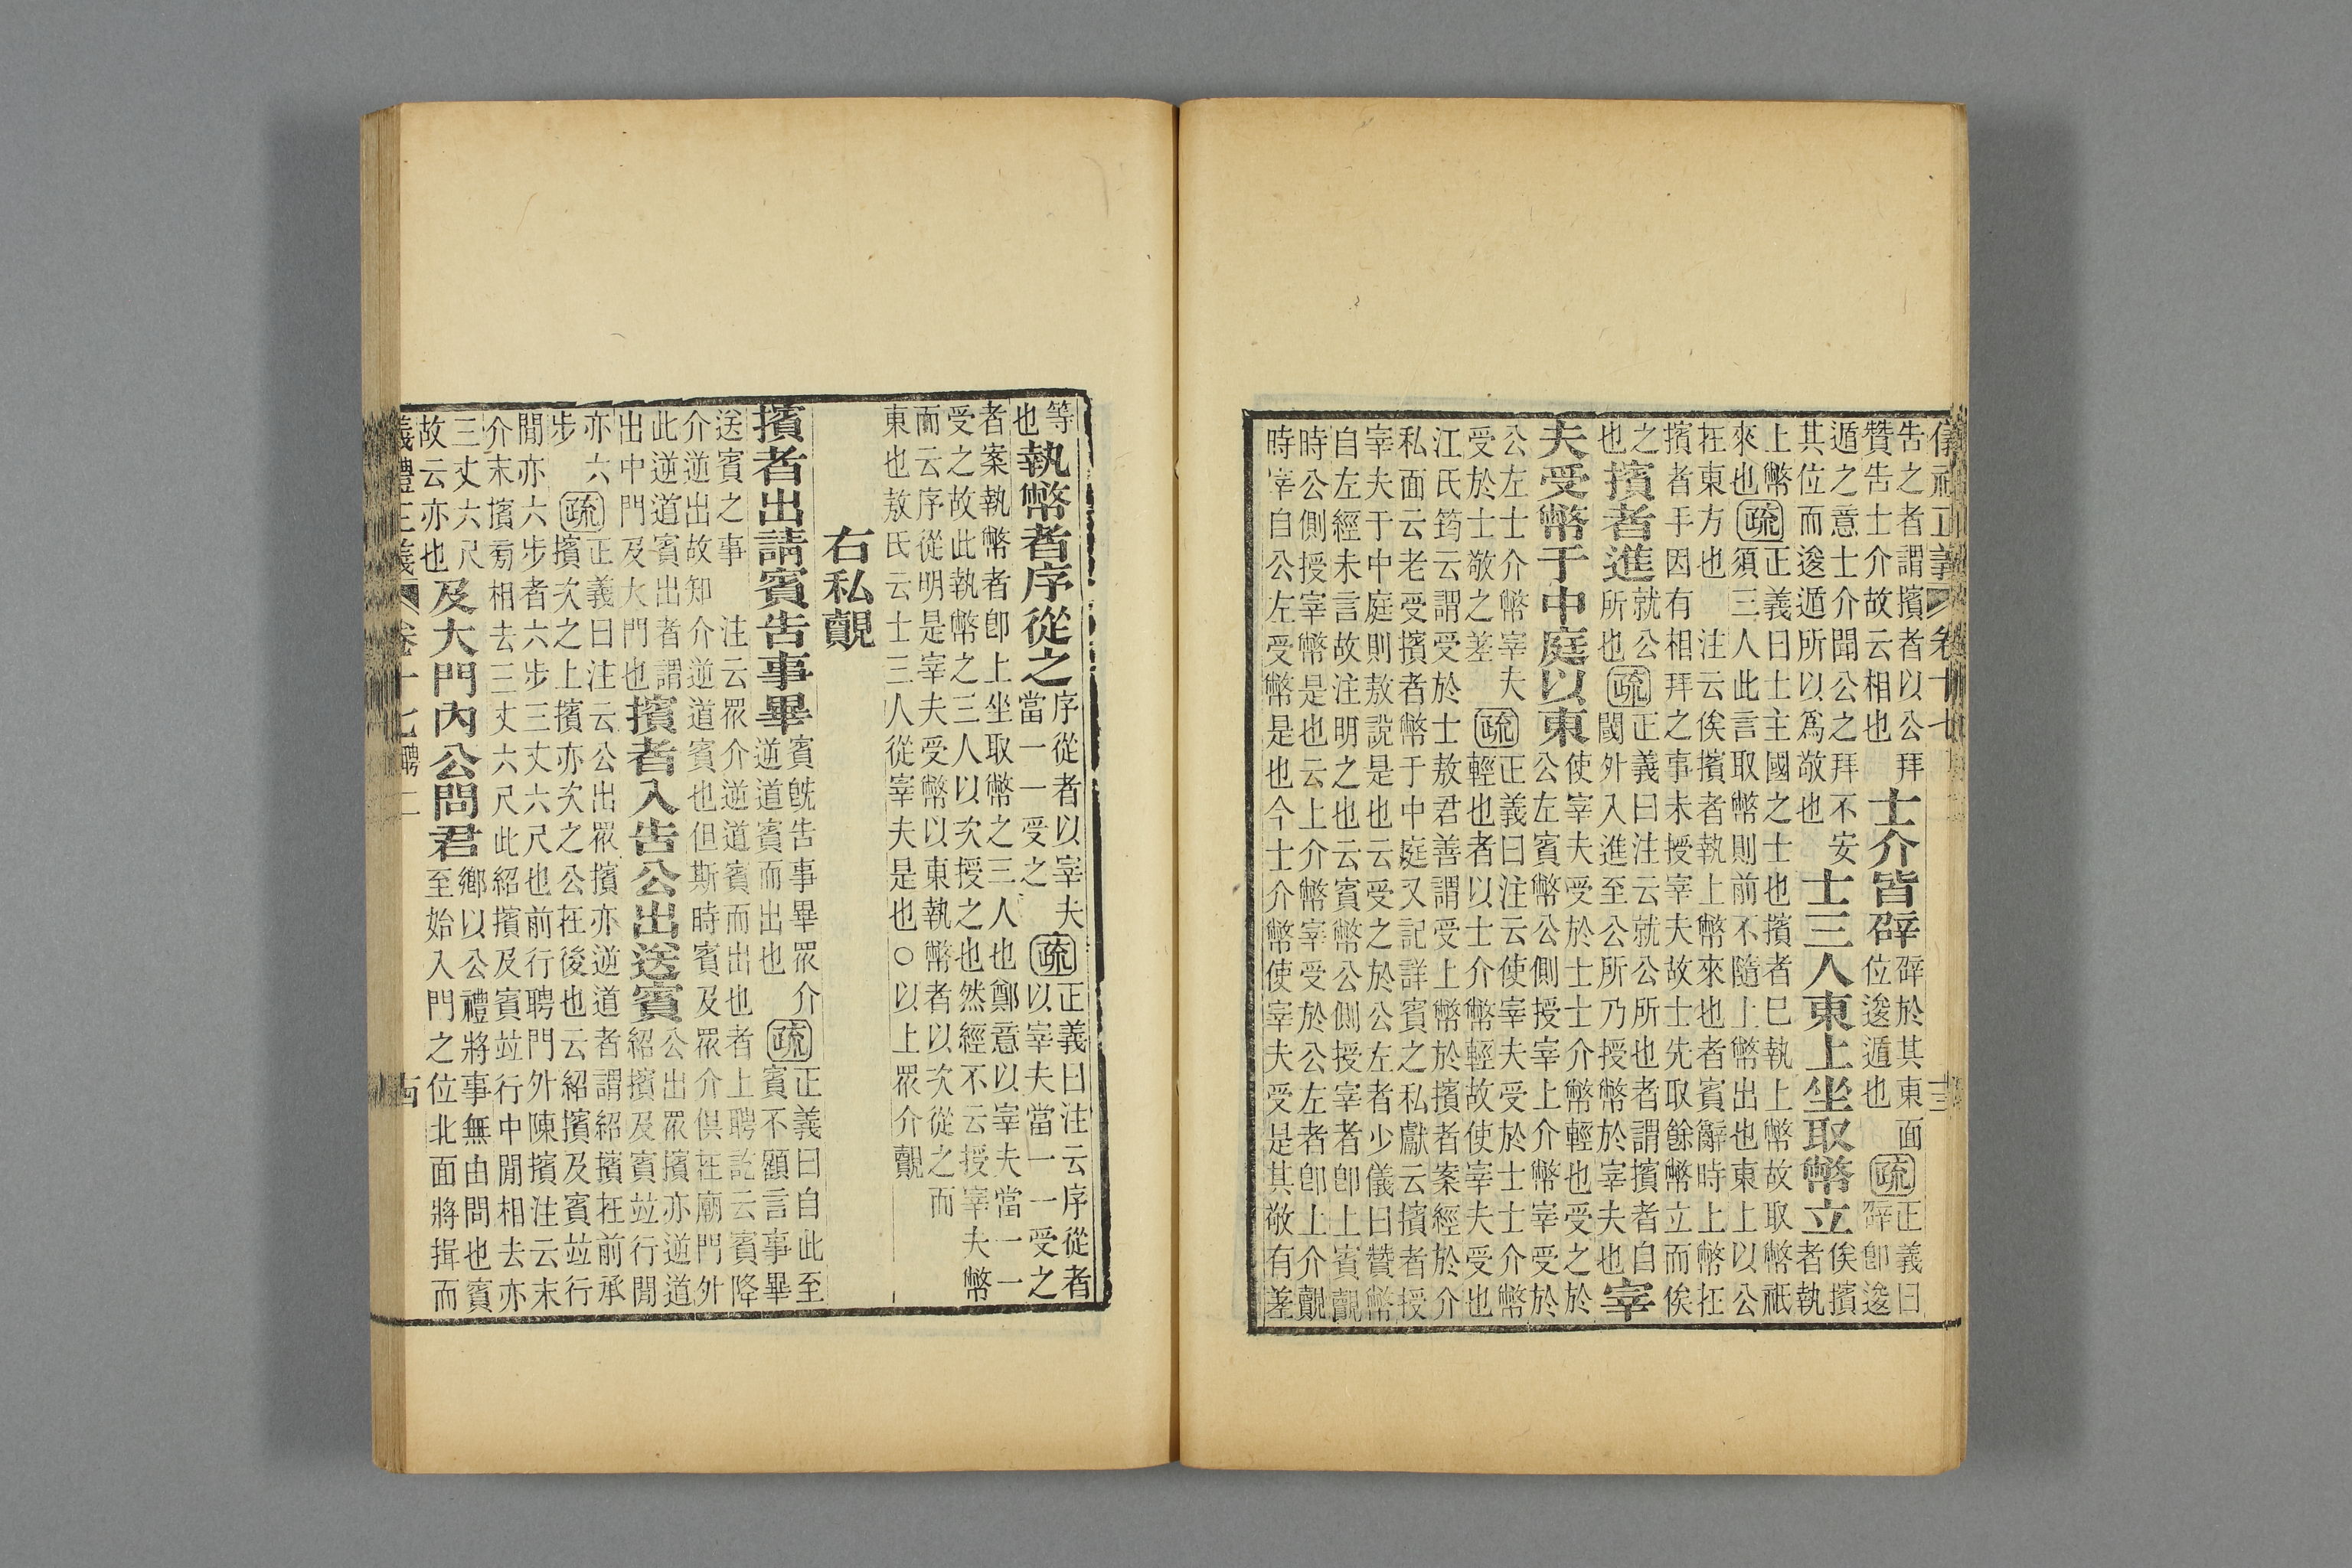 儀禮正義 卷十七
告之者謂擯者以公拜
贊告士介故云相也
士介皆辟
辟於其東面
位逡遁也
疏
正義曰
辟卽逡
遁之意士介聞公之拜不安
其位而逡遁所以爲敬也
士三人東上坐取幣立
俟擯
者執
上幣
來也
疏
正義曰士主國之士也擯者已執上幣故取幣祇
須三人此言取幣則前不隨上幣出也東上以公
在東方也 注云俟擯者執上幣來也者賓辭時上幣在
擯者手因有相拜之事未授宰夫故士先取餘幣立而俟
之
也
擯者進
就公
所也
疏
正義曰注云就公所也者謂擯者自
闑外入進至公所乃授幣於宰夫也
宰
夫受幣于中庭以東
使宰夫受於士士介幣輕也受之於
公左賓幣公側授宰上介幣宰受於
公左士介幣宰夫
受於士敬之差
疏
正義曰注云使宰夫受於士士介幣
輕也者以士介幣輕故使宰夫受也
江氏筠云謂受於士敖君善謂受上幣於擯者案經於介
私面云老受擯者幣于中庭又記詳賓之私獻云擯者授
宰夫于中庭則敖說是也云受之於公左者少儀曰贊幣
自左經未言故注明之也云賓幣公側授宰者卽上賓覿
時公側授宰幣是也云上介幣宰受於公左者卽上介覿
時宰自公左受幣是也今士介幣使宰夫受是其敬有差
等
也
執幣者序從之
序從者以宰夫
當一一受之
疏
正義曰注云序從者
以宰夫當一一受之
者案執幣者卽上坐取幣之三人也鄭意以宰夫當一一
受之故此執幣之三人以次授之也然經不云授宰夫幣
而云序從明是宰夫受幣以東執幣者以次從之而
東也敖氏云士三人從宰夫是也○以上眾介覿
右私覿
擯者出請賓告事畢
賓旣告事畢眾介
逆道賓而出也
疏
正義曰自此至
賓不顧言事畢
送賓之事 注云眾介逆道賓而出也者上聘訖云賓降
介逆出故知介逆道賓也但斯時賓及眾介俱在廟門外
此逆道賓出者謂
出中門及大門也
擯者入告公出送賓
公出眾擯亦逆道
紹擯及賓竝行閒
亦六
步
疏
正義曰注云公出眾擯亦逆道者謂紹擯在前承
擯次之上擯亦次之公在後也云紹擯及賓竝行
閒亦六步者六步三丈六尺也前行聘門外陳擯注云末
介末擯旁相去三丈六尺此紹擯及賓竝行中閒相去亦
三丈六尺
故云亦也
及大門內公問君
鄉以公禮將事無由問也賓
至始入門之位北面將揖而